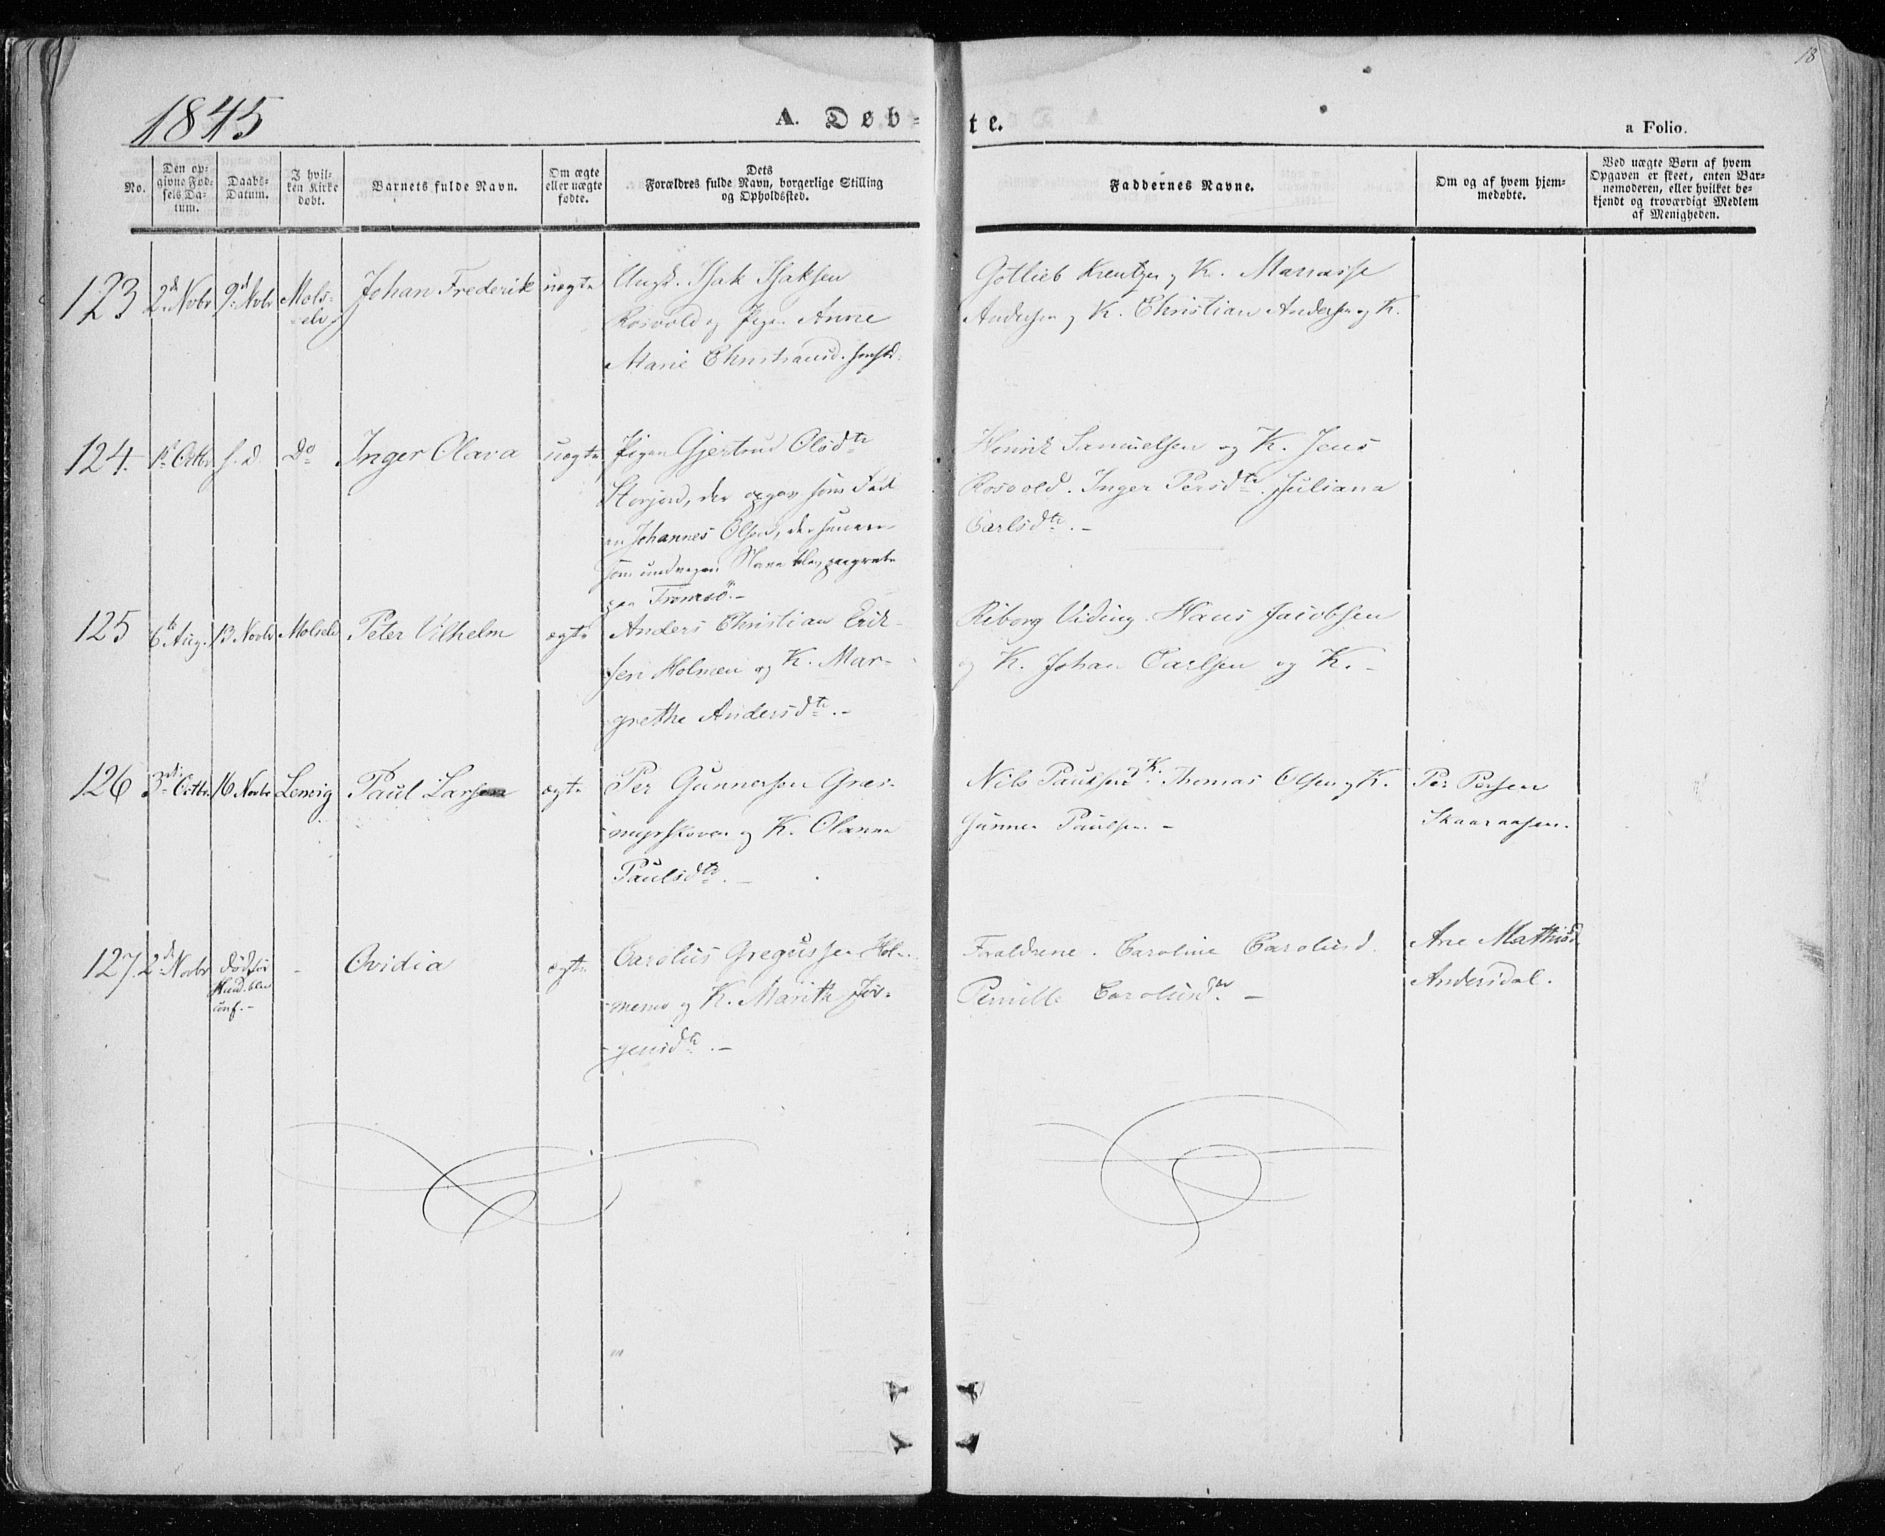 18
1845
A. Døb=
te.
a Folio.
No.
Den op=
givne Fød=
sels Da=
tum.
Daabs=
Datum.
I hvil=
ken Kirke
døbt.
Barnets fulde Navn.
Om ægte
eller uægte
fødte.
Dets
Forældres fulde Navn, borgerlige Stilling
og Opholdssted.
Faddernes Navne.
Om og af hvem hjem=
medøbte.
Ved uægte Børn af hvem
Opgaven er skeet, enten Bar=
nemoderen, eller hvilket be=
kjendt og troværdigt Medlem
af Menigheden.
123
2d Novbr
9d Novbr
Mols=
elv
Johan Frederik
uægte
Ungk. Isak Isaksen
Rosvold og Pigen Anne
Marie Christiansd.
Gotlieb Kreutzer og K. Manasse
Andersen og K. Christian Andersen og K.
124.
1ste Octbr
s. d.
Do
Inger Olava
uægte
Pigen Gjertrud Olsdtr
Storjord, der opgav som Fad
Johannes Olsen, der senere
som undvegen Slave blev paagreben
paa Tromsö.-
Henrik Samuelsen og K. Jens
Rosvold. Inger Persdtr. Juliana
Carlsdtr.-
125
6te Aug.
13 Novbr
Molselv
Peter Vilhelm
ægte
Anders Christian Erik-
sen Holmen og K. Mar-
grethe Andersdtr.-
Riborg Viding. Hans Jacobsen
og K. Johan Carlsen og K.-
126
3die Octbr.
16 Novbr
Lenvig
Paul Larsen
ægte
Per Gunnersen Græs-
myrskoven og K. Olanna
Paulsdtr.-
Nils Paulsen og K. Thomas Olsen og K.
Gunner Paulsen.-
Per Persen
Skaaraasen.
127.
2d Novbr
død før
Daab. blev
conf.-
-
Ovidia
ægte
Carolus Gregussen Hol-
menes og K. Marith Jør-
gensdtr.-
Forældrene. Caroline Carolusd.
Pernille Carolusdtr.-
Ane Mathisd
Andersdal.